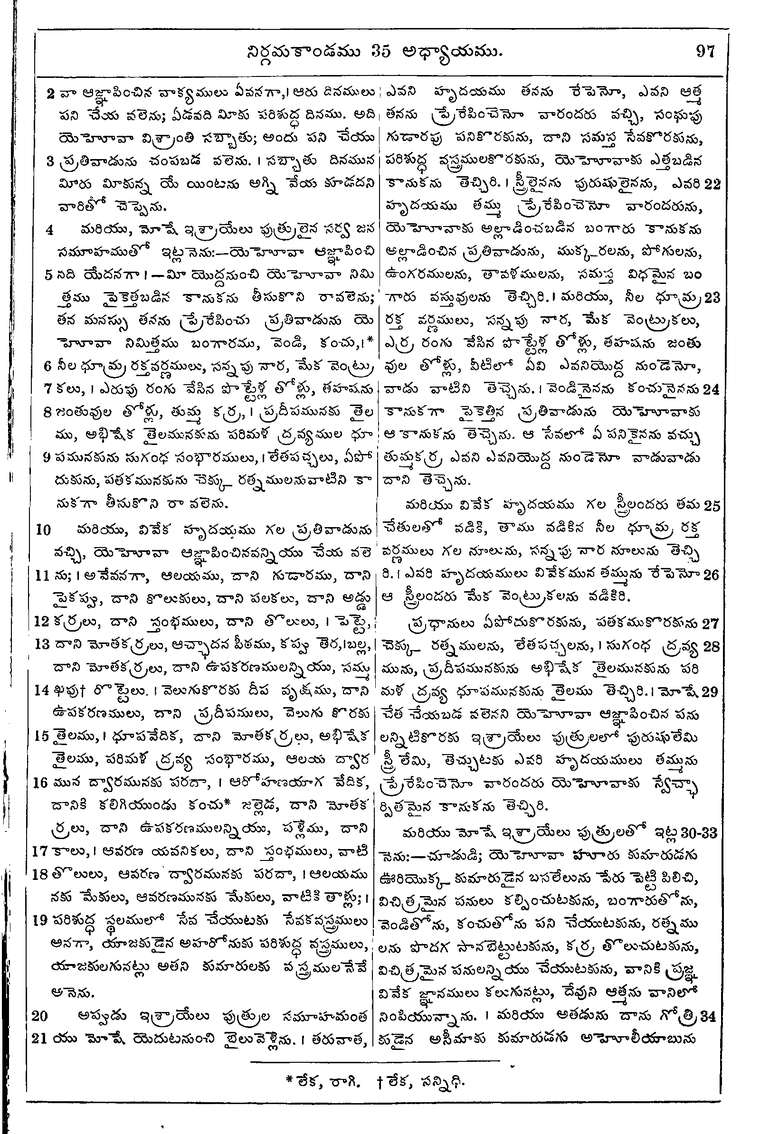 నిర్గమకాండము 35 అధ్యాయము.
97
2 వా ఆజ్ఞాపించిన వాక్యములు ఏవనగా,। ఆరు దినములు
పని చేయ వలెను; ఏడవది మీకు పరిశుద్ధ దినము. అది
యెహోవా విశ్రాంతి సబ్బాతు; అందు పని చేయు
3 ప్రతివాడును చంపబడ వలెను. । సబ్బాతు దినమున
మీరు మీకున్న యే యింటను అగ్ని వేయ కూడదని
వారితో చెప్పెను.
4 మరియు, మోషే ఇశ్రాయేలు పుత్రులైన సర్వ జన
సమూహముతో ఇట్లనెను:—యెహోవా ఆజ్ఞాపించి
5 నది యేదనగా । —మీ యొద్దనుంచి యెహోవా నిమి
త్తము పైకెత్తబడిన కానుకను తీసుకొని రావలెను;
తన మనస్సు తనను ప్రేరేపించు ప్రతివాడును యె
హోవా నిమిత్తము బంగారము, వెండి, కంచు,।*
6 నీల ధూమ్ర రక్తవర్ణములు, సన్నపు నార, మేక వెంట్రు
7 కలు, । ఎరుపు రంగు వేసిన పొట్టేళ్ల తోళ్లు, తహషను
8 జంతువుల తోళ్లు, తుమ్మ కర్ర, । ప్రదీపమునకు తైల
ము, అభిషేక తైలమునకును పరిమళ ద్రవ్యముల ధూ
9 పమునకును సుగంధ సంభారములు, । లేతపచ్చలు, ఏపో
దుకును, పతకమునకును చెక్కు రత్నములనువాటిని కా
నుకగా తీసుకొని రా వలెను.
10 మరియు, వివేక హృదయము గల ప్రతివాడును
వచ్చి, యెహోవా ఆజ్ఞాపించినవన్నియు చేయ వలె
11 ను; । అవేవనగా, ఆలయము, దాని గుడారము, దాని
పైకప్పు, దాని కొలుకులు, దాని పలకలు, దాని అడ్డు
12 కర్రలు, దాని స్తంభములు, దాని తొలులు, । పెట్టె,
13 దాని మోతకర్రలు, ఆచ్ఛాదన పీఠము, కప్పు తెర,।బల్ల,
దాని మోతకర్రలు, దాని ఉపకరణములన్నియు, సమ్ము
14 ఖపు† రొట్టెలు. । వెలుగుకొరకు దీప వృక్షము, దాని
ఉపకరణములు, దాని ప్రదీపములు, వెలుగు కొరకు
15 తైలము, । ధూపవేదిక, దాని మోతకర్రలు, అభిషేక
తైలము, పరిమళ ద్రవ్య సంభారము, ఆలయ ద్వార
16 మున ద్వారమునకు పరదా, । ఆరోహణయాగ వేదిక,
దానికి కలిగియుండు కంచు* జల్లెడ, దాని మోతక
ర్రలు, దాని ఉపకరణములన్నియు, పళ్లెము, దాని
17 కాలు, । ఆవరణ యవనికలు, దాని స్తంభములు, వాటి
18 తొలులు, ఆవరణ ద్వారమునకు పరదా, । ఆలయము
నకు మేకులు, ఆవరణమునకు మేకులు, వాటికి తాళ్లు; ।
19 పరిశుద్ధ స్థలములో సేవ చేయుటకు సేవకవస్త్రములు
అనగా, యాజకుడైన అహరోనుకు పరిశుద్ధ వస్త్రములు,
యాజకులగునట్లు అతని కుమారులకు వస్త్రములనేవే
అనెను.
20 అప్పుడు ఇశ్రాయేలు పుత్రుల సమూహమంత
21 యు మోషే యెదుటనుంచి బైలువెళ్లెను. । తరువాత,
ఎవని హృదయము తనను రేపెనో, ఎవని ఆత్మ
తనను ప్రేరేపించెనో వారందరు వచ్చి, సంఘపు
గుడారపు పనికొరకును, దాని సమస్త సేవకొరకును,
పరిశుద్ధ వస్త్రములకొరకును, యెహోవాకు ఎత్తబడిన
కానుకను తెచ్చిరి. । స్త్రీలైనను పురుషులైనను, ఎవరి 22
హృదయము తమ్ము ప్రేరేపించెనో వారందరును,
యెహోవాకు అల్లాడించబడిన బంగారు కానుకను
అల్లాడించిన ప్రతివాడును, ముక్కరలను, పోగులను,
ఉంగరములను, తావళములను, సమస్త విధమైన బం
గారు వస్తువులను తెచ్చిరి. । మరియు, నీల ధూమ్ర 23
రక్త వర్ణములు, సన్నపు నార, మేక వెంట్రుకలు,
ఎర్ర రంగు వేసిన పొట్టేళ్ల తోళ్లు, తహషను జంతు
వుల తోళ్లు, వీటిలో ఏవి ఎవనియొద్ద నుండెనో,
వాడు వాటిని తెచ్చెను. । వెండినైనను కంచునైనను 24
కానుకగా పైకెత్తిన ప్రతివాడును యెహోవాకు
ఆ కానుకను తెచ్చెను. ఆ సేవలో ఏ పనికైనను వచ్చు
తుమ్మకర్ర ఎవని ఎవనియొద్ద నుండెనో వాడువాడు
దాని తెచ్చెను.
మరియు వివేక హృదయము గల స్త్రీలందరు తమ 25
చేతులతో వడికి, తాము వడికిన నీల ధూమ్ర రక్త
వర్ణములు గల నూలును, సన్నపు నార నూలును తెచ్చి
రి. । ఎవరి హృదయములు వివేకమున తమ్మును రేపెనో 26
ఆ స్త్రీలందరు మేక వెంట్రుకలను వడికిరి.
ప్రధానులు ఏపోదుకొరకును, పతకముకొరకును 27
చెక్కు రత్నములను, లేతపచ్చలను, । సుగంధ ద్రవ్య 28
మును, ప్రదీపమునకును అభిషేక తైలమునకును పరి
మళ ద్రవ్య ధూపమునకును తైలము తెచ్చిరి. । మోషే 29
చేత చేయబడ వలెనని యెహోవా ఆజ్ఞాపించిన పను
లన్నిటికొరకు ఇశ్రాయేలు పుత్రులలో పురుషులేమి
స్త్రీలేమి, తెచ్చుటకు ఎవరి హృదయములు తమ్మును
ప్రేరేపించెనో వారందరు యెహోవాకు స్వేచ్ఛా
ర్పితమైన కానుకను తెచ్చిరి.
మరియు మోషే ఇశ్రాయేలు పుత్రులతో ఇట్ల 30-33
నెను:—చూడుడి; యెహోవా హూరు కుమారుడగు
ఊరియొక్క కుమారుడైన బసలేలును పేరు పెట్టి పిలిచి,
విచిత్రమైన పనులు కల్పించుటకును, బంగారుతోను,
వెండితోను, కంచుతోను పని చేయుటకును, రత్నము
లను పొదగ సానబెట్టుటకును, కర్ర తొలుచుటకును,
విచిత్రమైన పనులన్నియు చేయుటకును, వానికి ప్రజ్ఞ
వివేక జ్ఞానములు కలుగునట్లు, దేవుని ఆత్మను వానిలో
నింపియున్నాను. । మరియు అతడును దాను గోత్రి 34
కుడైన అసీమాకు కుమారుడగు అహోలీయాబును
* లేక, రాగి. † లేక, సన్నిధి.